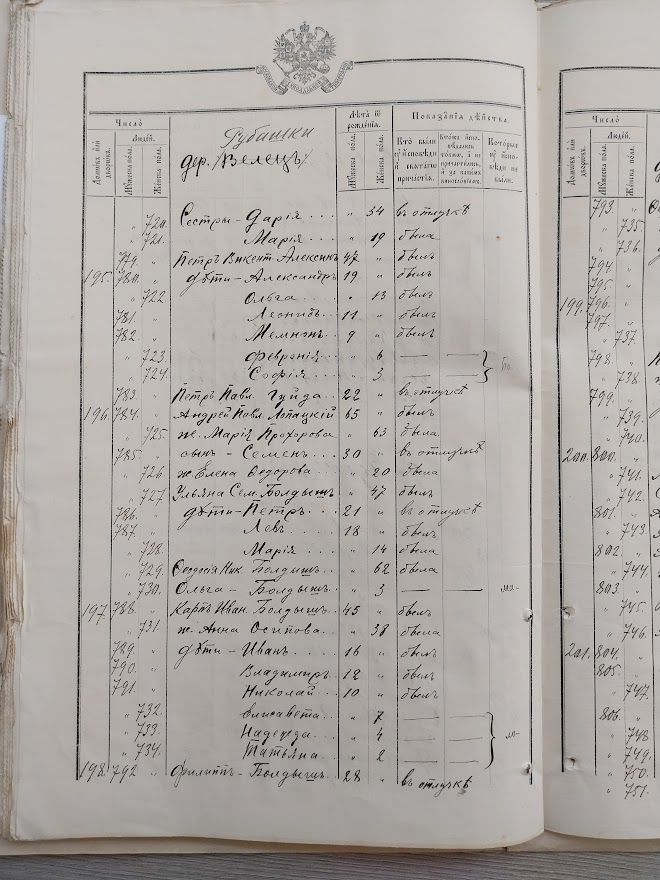 Число
Людей.
Домовъ или дворовъ.
Мꙋжеска пола.
Женска пола.
Рубашки
дер. /Велецъ/
Лѣта ѿ рожденїѧ.
Мꙋжеска пола.
Женска пола.
Показанїѧ дѣйства.
Кто были ꙋ исповѣди и свѧтаго причастїѧ.
Которые ꙋ исповѣди не были.
" 720. Сестры - Дарія.... " 54 въ отлучкѣ
" 721. Марія.... " 19 была
779. " Петръ Викент. Алексин 47 " былъ
195. 780. " дѣти - Александръ 19 " былъ
" 722. Ольга.... " 13 была
781. " Леонидъ.. 11 " былъ
782. " Мемнонъ.. 9 " былъ
" 723 Февронія... " 6 — —
" 724. Софія.... " 3 — —
783. " Петръ Павл. Гуйда.. 22 " въ отлучкѣ
196. 784. " Андрей Павл. Лопацкій 65 " былъ
" 725. ж. Марія Прохорова " 63 была
785. " сынъ - Семенъ.. 30 " въ отлучкѣ
" 726. ж. Елена Ѳедорова.. " 20 была
" 727. Ульяна Сем. Болдышъ " 47 была
786. " дѣти - Петръ.. 21 " въ отлучкѣ
787. " Левъ.... 18 " былъ
" 728. Марія.... " 14 была
" 729. Ѳеодосія Ник. Болдышъ.. " 62 была
" 730. Ольга - Болдышъ.. " 3 — —
197. 788. " Карпъ Иван. Болдышъ. 45 " былъ
" 731. ж. Анна Осипова.. " 38 была
789. " дѣти - Иванъ... 16 " былъ
790. " Владимиръ.. 12 " былъ
791. " Николай.. 10 " былъ
" 732. Елисавета.. " 7 — —
" 733. Надежда.. " 4 — —
" 734. Татьяна.. " 2 — —
198. 792 " Филиппъ - Болдышъ.. 28 " въ отлучкѣ
Число
Домовъ или дворовъ.
Мꙋжеска пола.
Женска пола.
793. "
" 735.
" 736.
794. "
795. "
199. 796. "
797. "
" 737.
798. "
" 738.
799. "
" 739.
" 740.
200. 800. "
" 741.
" 742.
801. "
" 743.
802. "
" 744.
803. "
" 745.
" 746.
201. 804. "
805. "
" 747.
806. "
" 748
" 749.
" 750.
" 751.